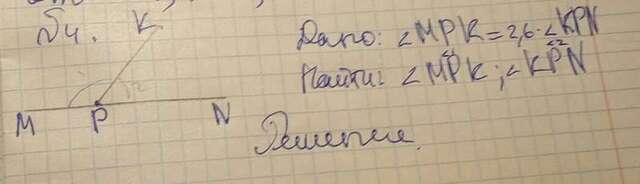 №4.
K
Дано: ∠MPK=2,6·∠KPN
Найти: ∠MPK; ∠KPN
M P N
Решение.